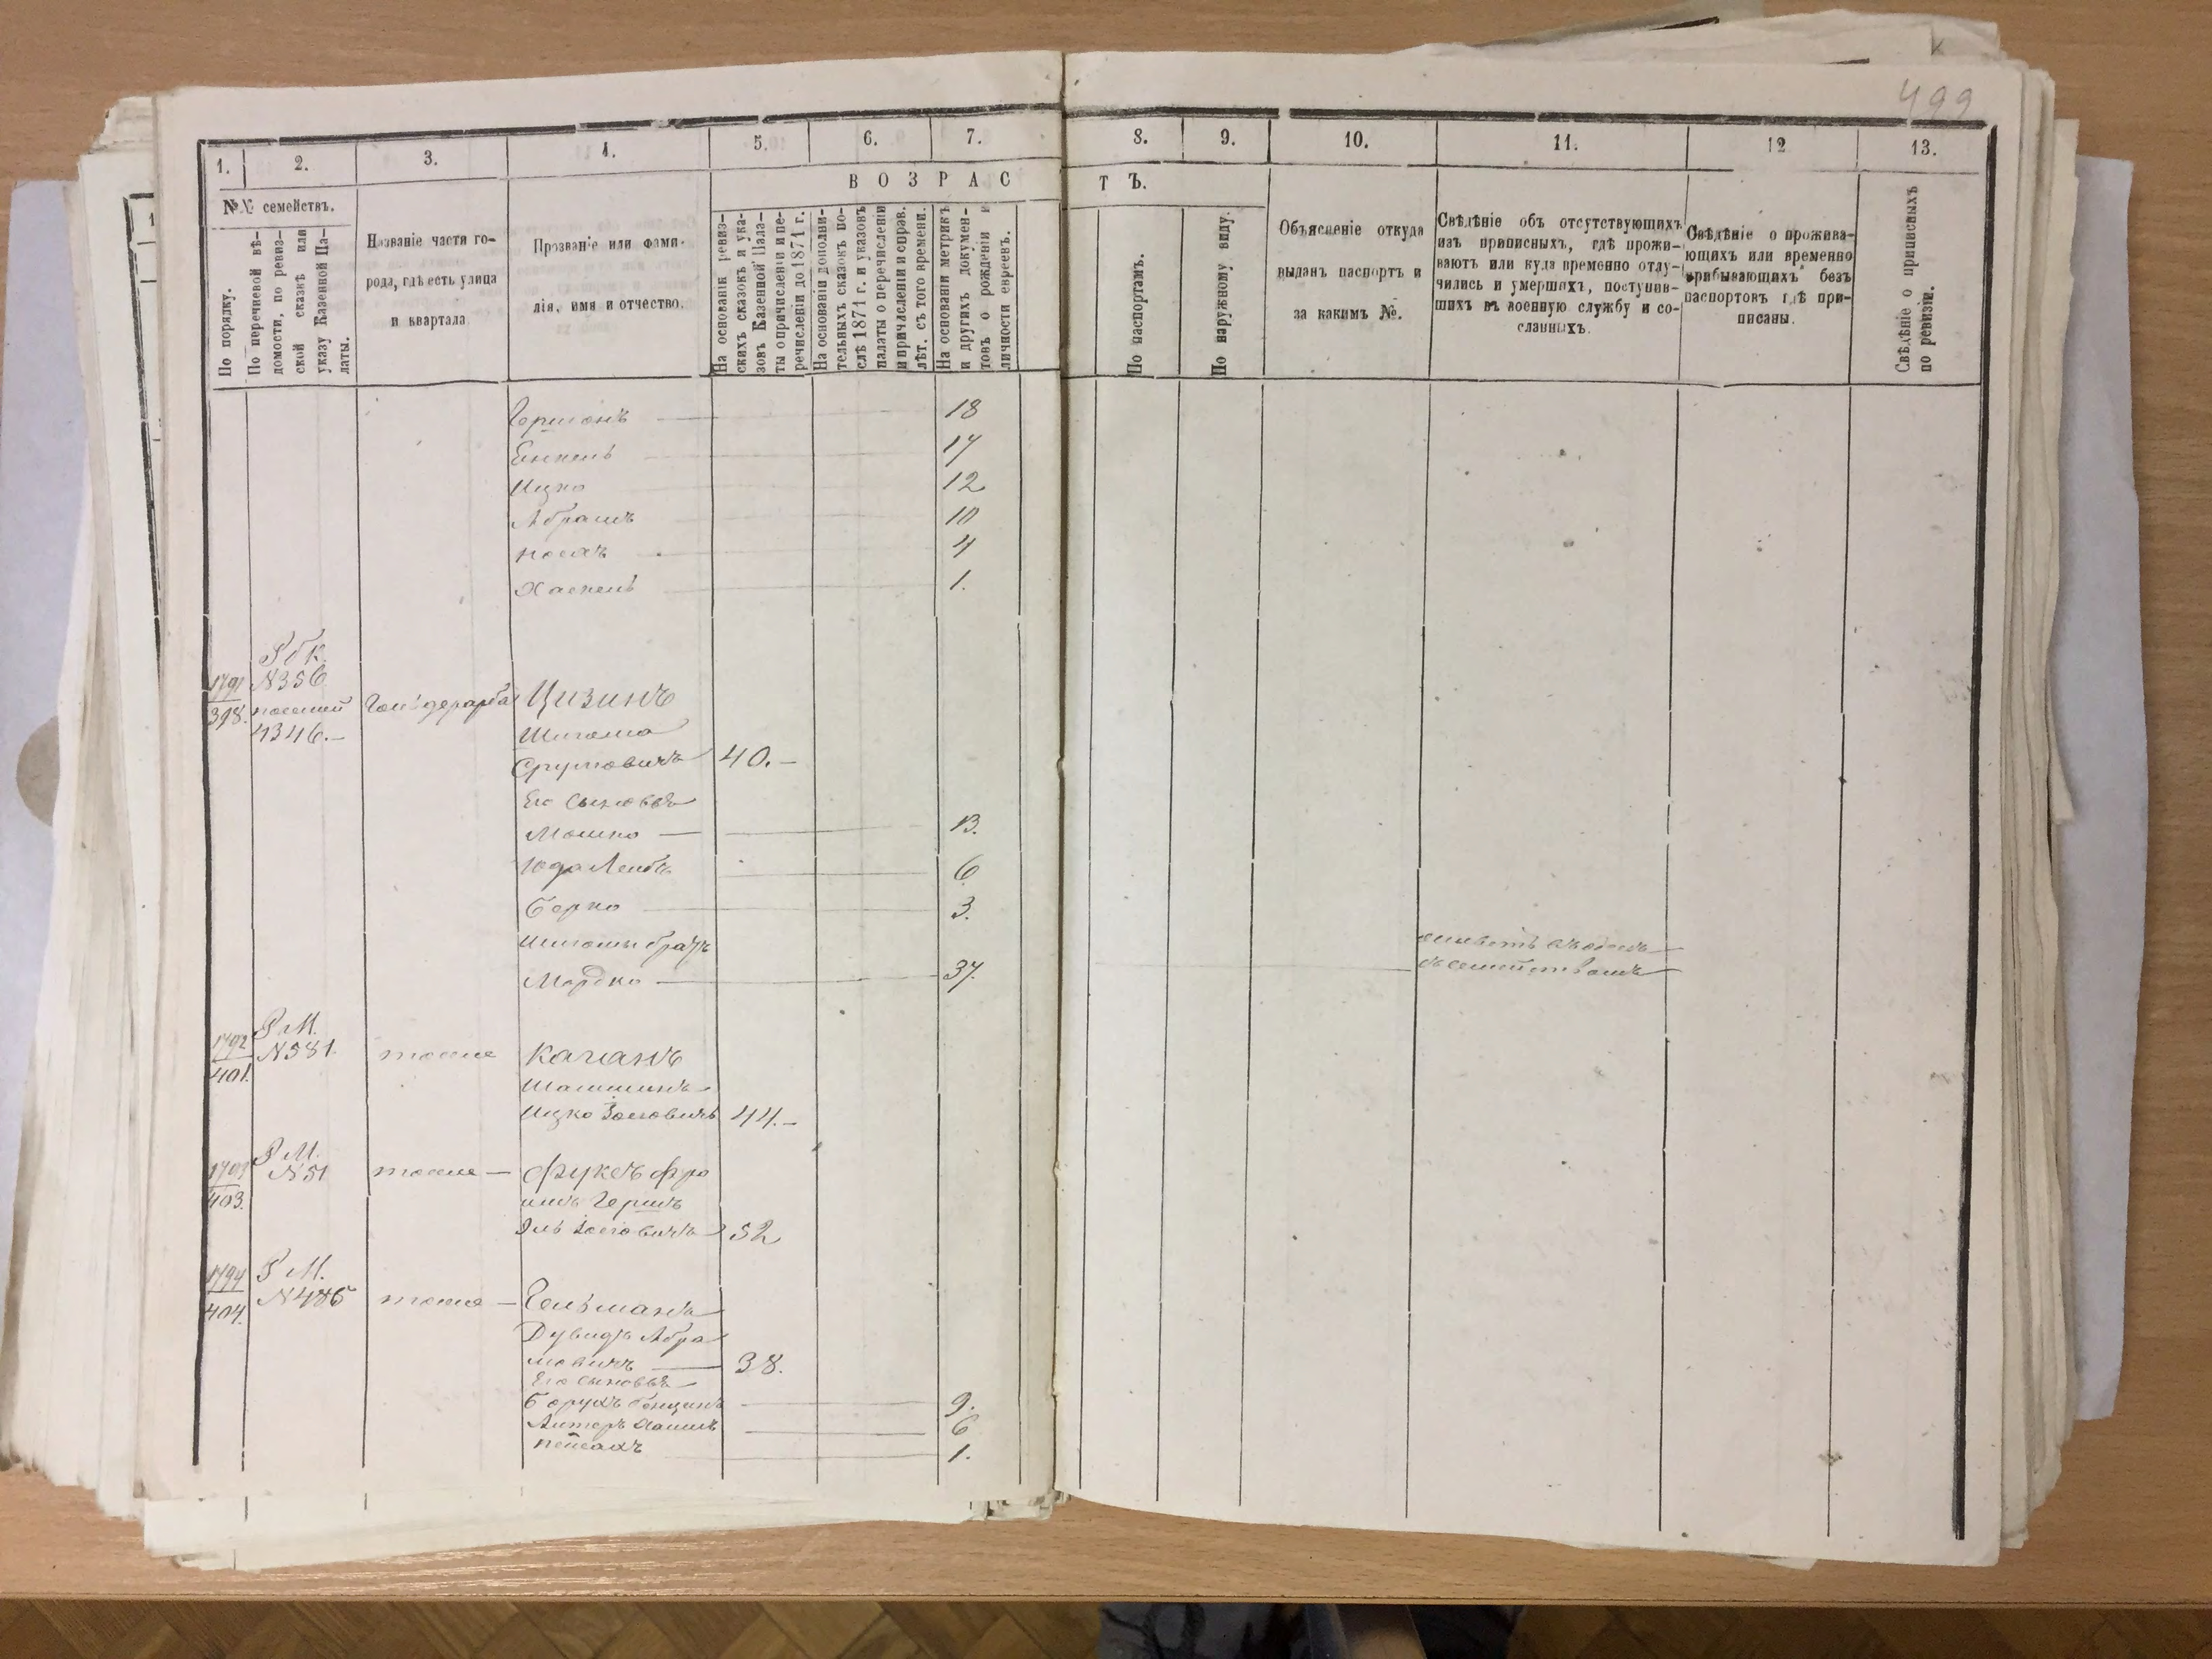 499
1.
2.
3.
4.
5.
6.
7.
8.
9.
10.
11.
12
13.
№№ семействъ.
По порядку.
По перечневой вѣ-
домости, по ревиз-
ской сказкѣ или
указу Казенной Па-
латы.
Названіе части го-
рода, гдѣ есть улица
и квартала
Прозваніе или фами-
лія, имя и отчество.
ВОЗРАС
ТЪ.
На основаніи ревиз-
скихъ сказокъ и ука-
зовъ Казенной Пала-
ты о причисленіи и пе-
речисленіи до 1871 г.
На основаніи дополни-
тельныхъ сказокъ по-
слѣ 1871 г. и указовъ
палаты о перечисленіи
и причисленіи и справ.
лѣт. съ того времени.
На основаніи метрикъ
и другихъ докумен-
товъ о рожденіи и
личности евреевъ.
По паспортамъ.
По наружному виду.
Объясненіе откуда
выданъ паспортъ и
за какимъ №.
Свѣдѣніе объ отсутствующихъ
изъ приписныхъ, гдѣ прожи-
ваютъ или куда временно отлу-
чились и умершихъ, поступив-
шихъ въ военную службу и со-
сланныхъ.
Свѣдѣніе о прожива-
ющихъ или временно
прибывающихъ безъ
паспортовъ гдѣ при-
писаны.
Свѣдѣніе о приписныхъ
по ревизіи.
Гершонъ — 18
Енкель — 17
Ицко 12
Абрамъ 10
4
Хаскель 1.
1791
398.
N356
4346.—
Цизинъ
Шиома
Сруловичъ 40.—
Его сыновья
Мошко — 13.
Юда Лейбъ 6
Берко 3.
братъ
Мордко — 37.
съ семействомъ
1792
401.
Р М.
N581.
тоже
Каганъ
Ицко Іосіовичъ 44.—
1793
403.
Р М.
N51
тоже —
Фуксъ Фро
имъ Гершъ
Эль Іосіовичъ 52
1794
404.
Р М.
N486
тоже —
Гельманъ
Дувидъ Абра
мовичъ — 38.
Его сыновья
Борухъ Бенционъ 9.
Алтеръ Хаимъ 6
Пейсахъ 1.